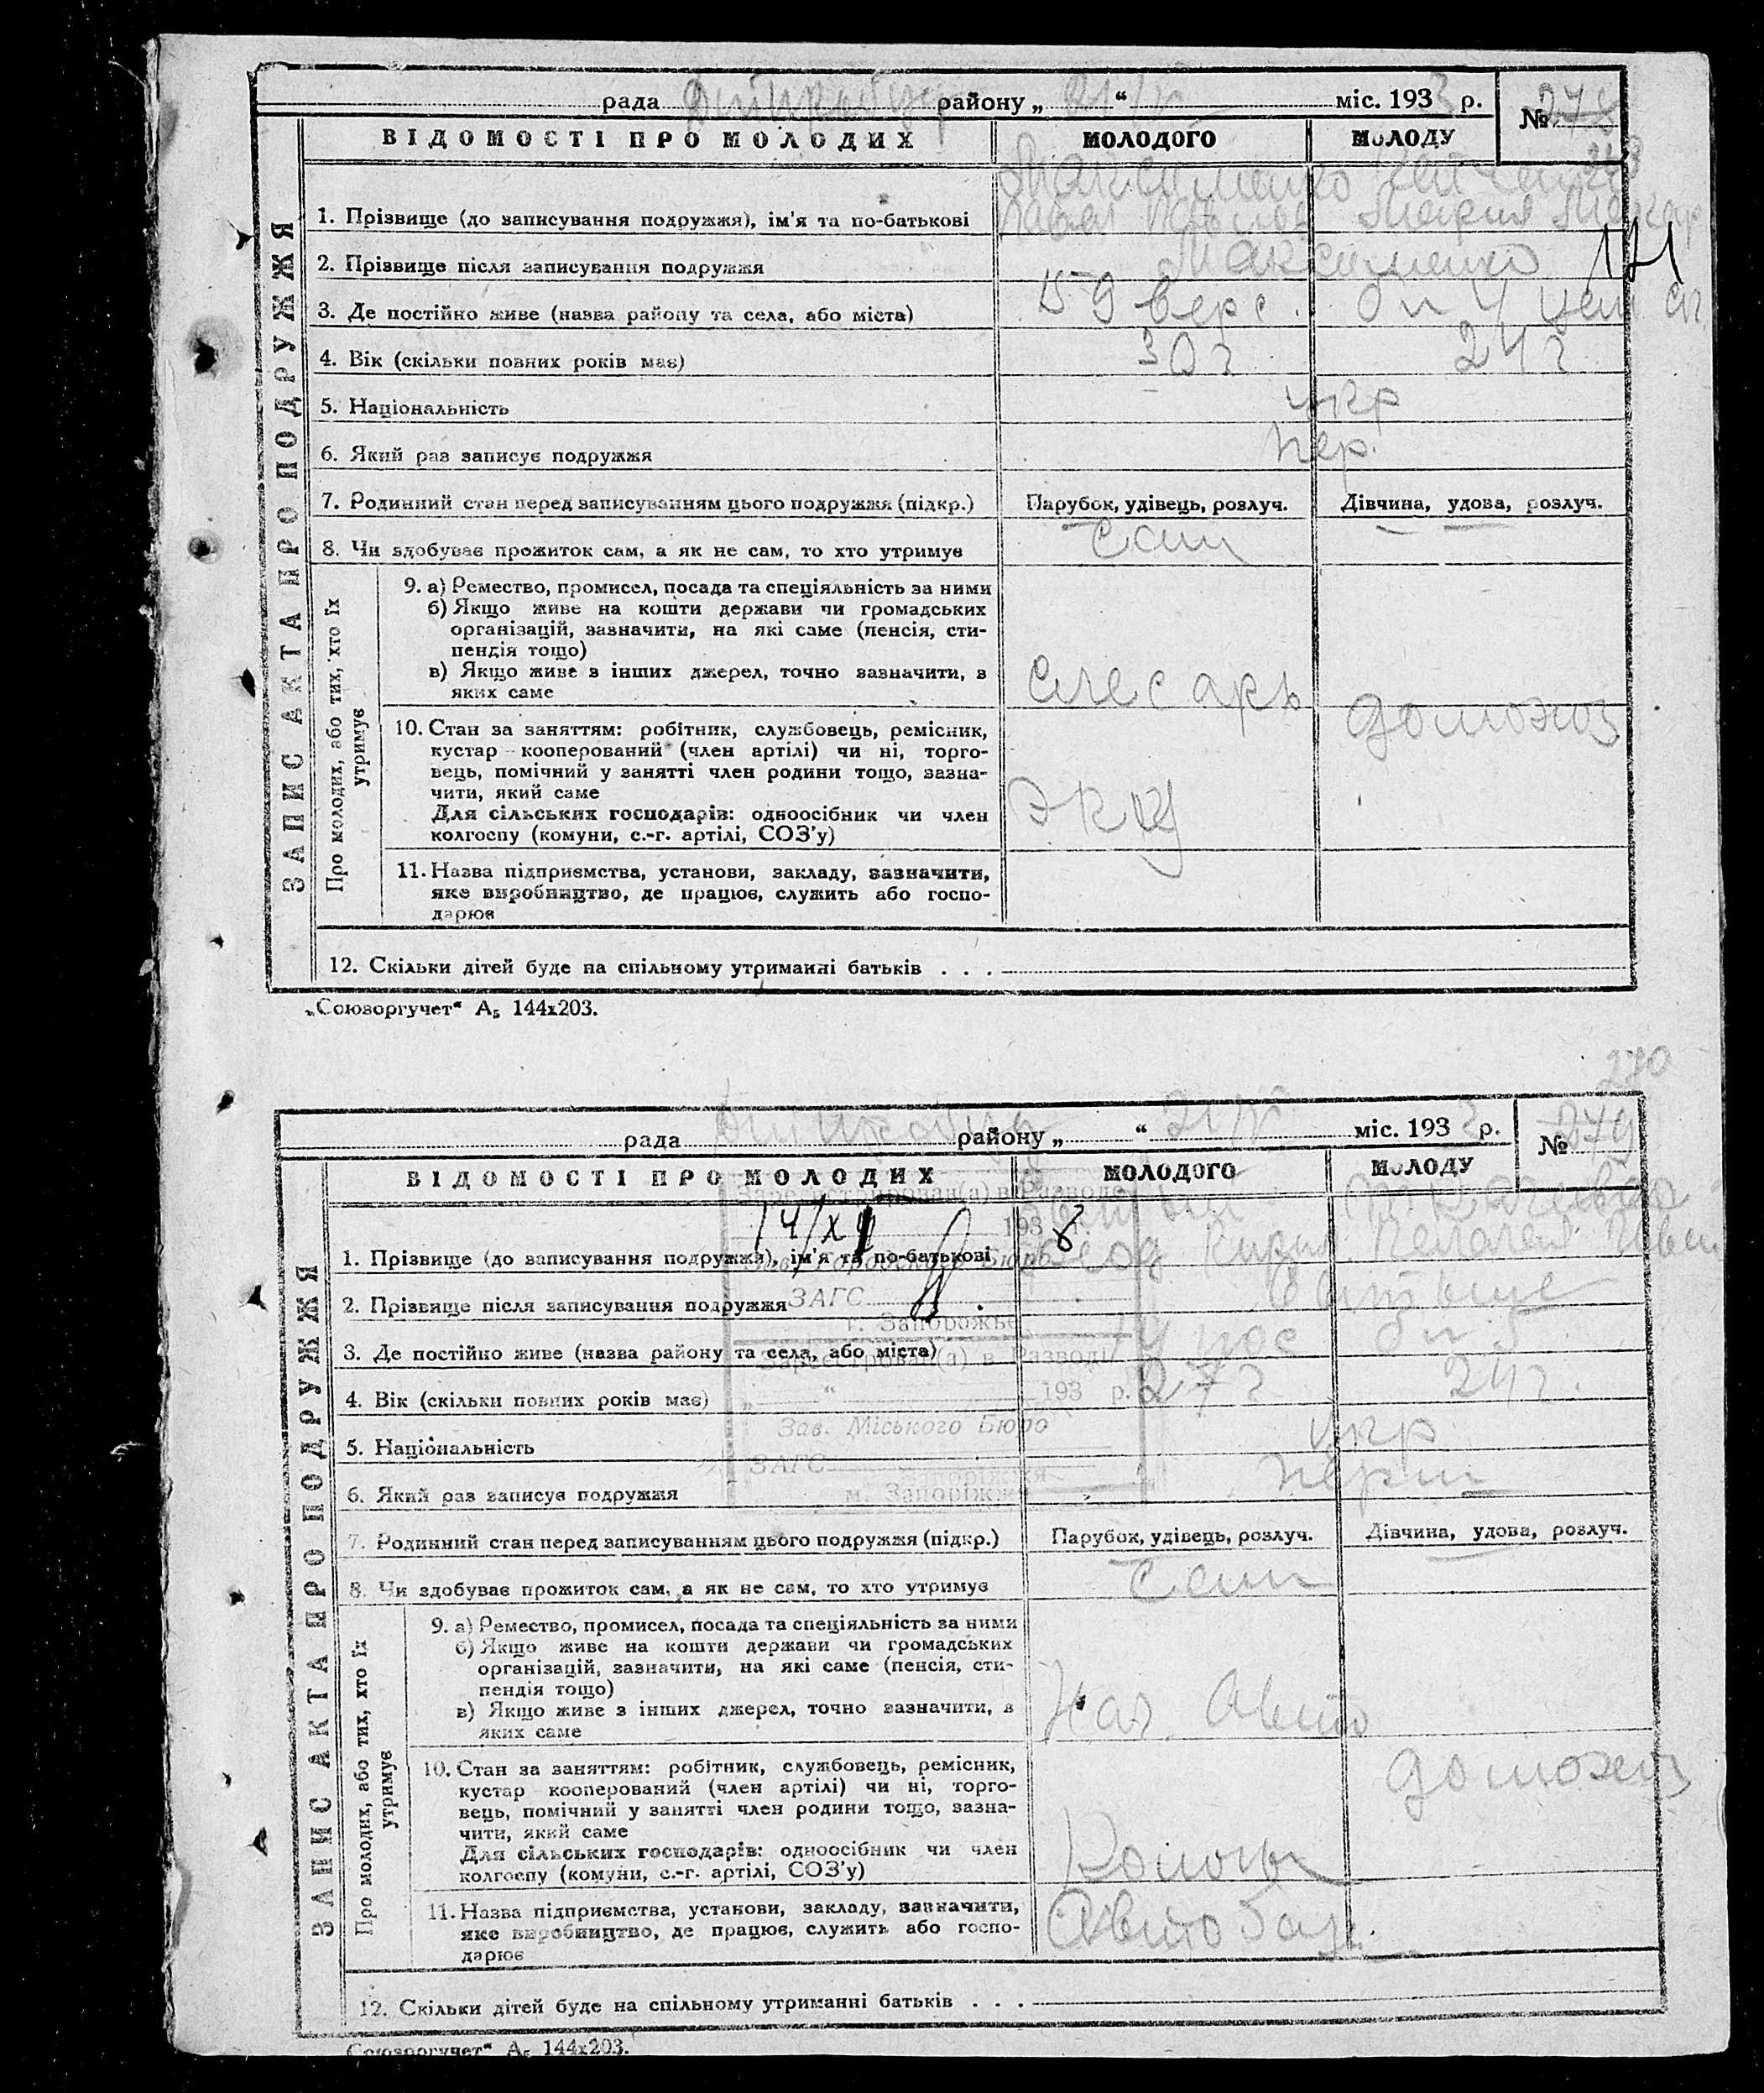 рада району „ “ міс. 193 3 р. №
ВІДОМОСТІ ПРО МОЛОДИХ МОЛОДОГО МОЛОДУ
ЗАПИС АКТА ПРО ПОДРУЖЖЯ
Максименко
1. Прізвище (до записування подружжя), ім'я та по-батькові Мария Макар
2. Прізвище після записування подружжя Максименко
121
3. Де постійно живе (назва району та села, або міста)
4. Вік (скільки повних років має) 30 г 24 г.
5. Національність укр
6. Який раз записує подружжя пер.
7. Родинний стан перед записуванням цього подружжя (підкр.) Парубок, удівець, розлуч. Дівчина, удова, розлуч.
8. Чи здобуває прожиток сам, а як не сам, то хто утримує сам
Про молодих, або тих, хто їх утримує
9. а) Ремество, промисел, посада та спеціяльність за ними
б) Якщо живе на кошти держави чи громадських
організацій, зазначити, на які саме (пенсія, сти-
пендія тощо)
в) Якщо живе з інших джерел, точно зазначити, з
яких саме
слесарь
домохоз
10. Стан за заняттям: робітник, службовець, ремісник,
кустар кооперований (член артілі) чи ні, торго-
вець, помічний у занятті член родини тощо, зазна-
чити, який саме
Для сільських господарів: одноосібник чи член
колгоспу (комуни, с.-г. артілі, СОЗ'у)
11. Назва підприємства, установи, закладу, зазначити,
яке виробництво, де працює, служить або госпо-
дарює
12. Скільки дітей буде на спільному утриманні батьків . . .
„Союзоргучет“ А5 144х203.
270
рада району „ “ міс. 193 3 р. № 279
ВІДОМОСТІ ПРО МОЛОДИХ МОЛОДОГО МОЛОДУ
ЗАПИС АКТА ПРО ПОДРУЖЖЯ
Зарегистрирован(а) в Разводе
193 8
1. Прізвище (до записування подружжя), ім'я та по-батькові
Зав. Городского Бюро
2. Прізвище після записування подружжя
ЗАГС
г. Запорожье
3. Де постійно живе (назва району та села, або міста)
Зареєстрован(а) в Разводі
4. Вік (скільки повних років має) 27 г 24 г.
„ “ 193 р.
Зав. Міського Бюро
5. Національність укр
ЗАГС
6. Який раз записує подружжя перш
м. Запоріжжя
7. Родинний стан перед записуванням цього подружжя (підкр.) Парубок, удівець, розлуч. Дівчина, удова, розлуч.
8. Чи здобуває прожиток сам, а як не сам, то хто утримує сам
Про молодих, або тих, хто їх утримує
9. а) Ремество, промисел, посада та спеціяльність за ними
б) Якщо живе на кошти держави чи громадських
організацій, зазначити, на які саме (пенсія, сти-
пендія тощо)
в) Якщо живе з інших джерел, точно зазначити, з
яких саме
Нач. Авто
домохоз
10. Стан за заняттям: робітник, службовець, ремісник,
кустар кооперований (член артілі) чи ні, торго-
вець, помічний у занятті член родини тощо, зазна-
чити, який саме
Для сільських господарів: одноосібник чи член
колгоспу (комуни, с.-г. артілі, СОЗ'у)
11. Назва підприємства, установи, закладу, зазначити,
яке виробництво, де працює, служить або госпо-
дарює
12. Скільки дітей буде на спільному утриманні батьків . . .
Союзоргучет“ А5 144х203.